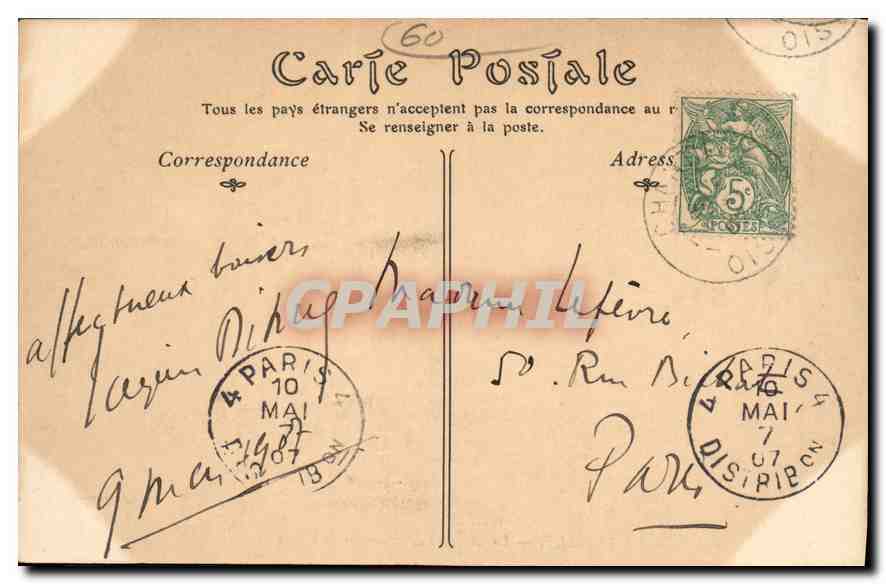 60
Carte Postale
Tous les pays étrangers n'acceptent pas la correspondance au
Se renseigner à la poste.
Correspondance
Adress
5c
POSTES
OIS
CHA
OIS
affectueux baisers
CPAPHIL
Madame Lefèvre
50. Rue
Paris
9 mai 1907
4 PARIS 4
10
MAI
07
DISTRIBON
4 PARIS 4
10
MAI
7
07
DISTRIBON